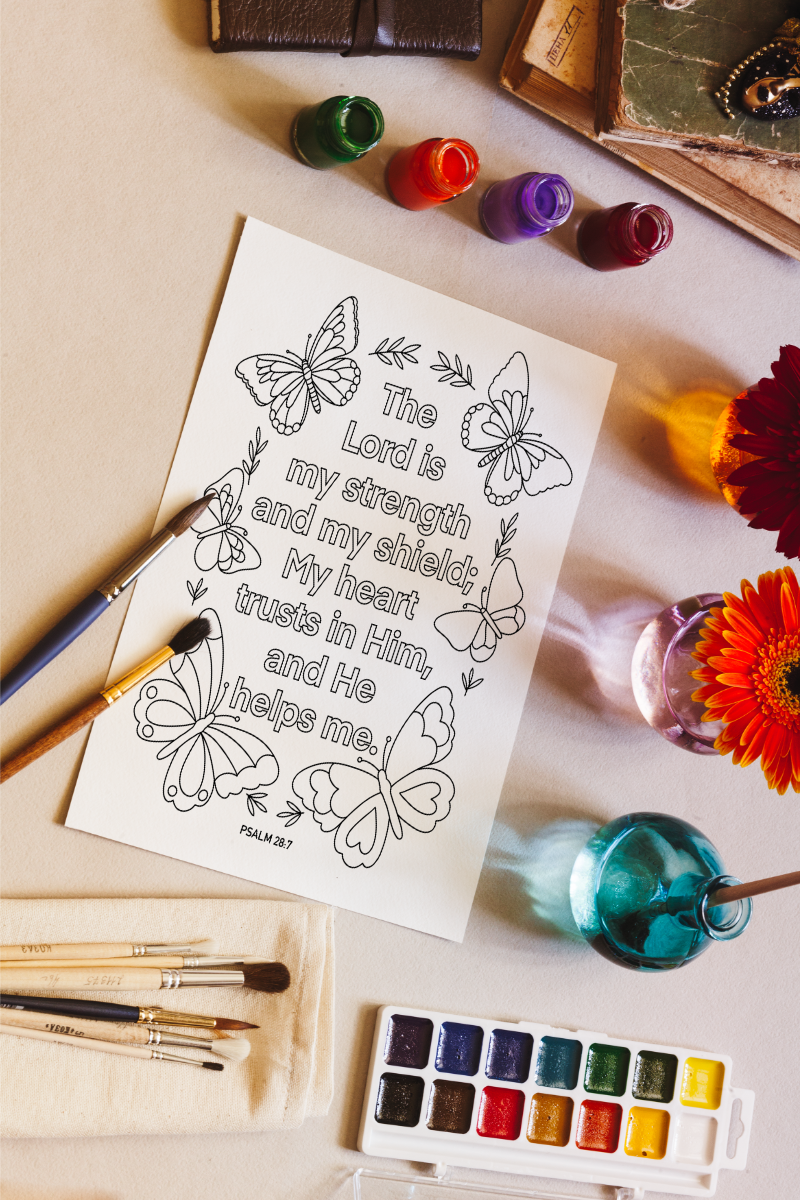 ЦЕНА
The
Lord is
my strength
and my shield;
My heart
trusts in Him,
and He
helps me.
PSALM 28:7